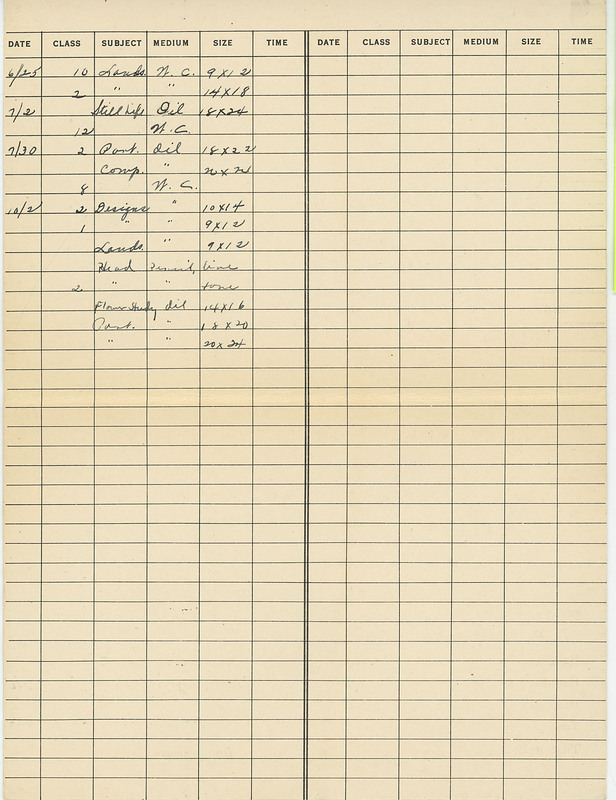 DATE CLASS SUBJECT MEDIUM SIZE TIME DATE CLASS SUBJECT MEDIUM SIZE TIME
6/25 10 Lands. W. C. 9x12
2 " " 14x18
7/2 Still Life Oil 18x24
12 W. C.
7/30 2 Port. Oil 18x22
Comp. "
8 W. C.
10/2 2 Designs " 10x14
1 " " 9x12
Lands. " 9x12
Head Pencil, line
2 " " tone
Flower Study Oil 14x16
Port. " 18x20
" " 20x24